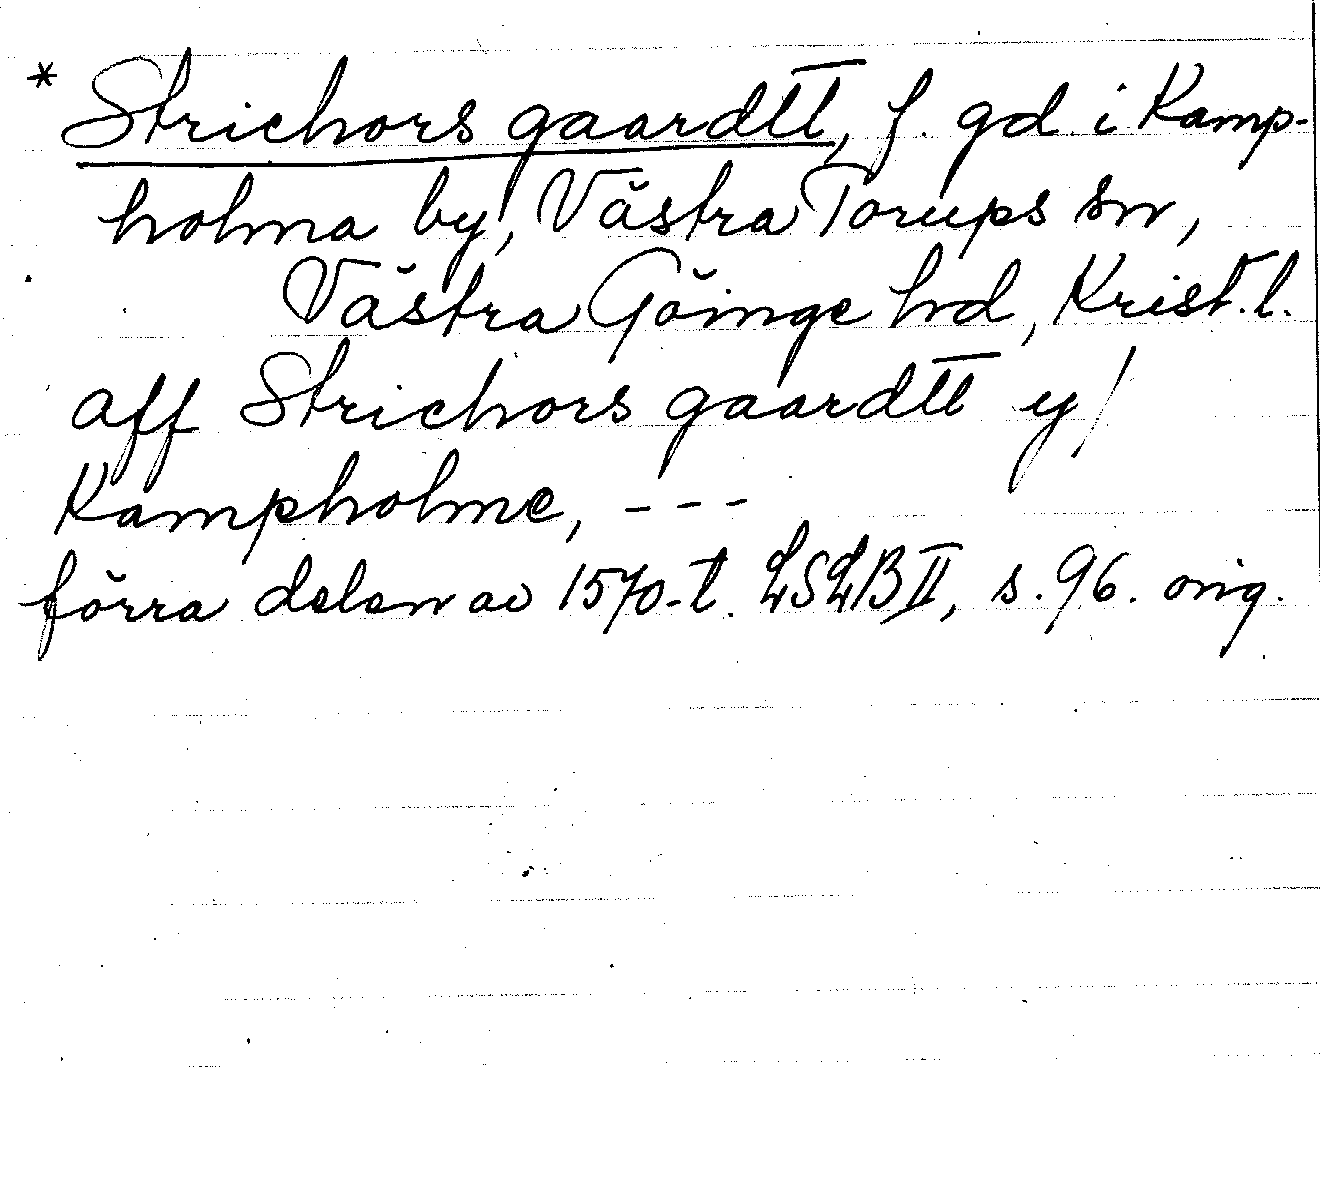 * Strichors gaardtt, f. gd i Kamp-
holma by, Västra Torups sn,
Västra Göinge hd, Krist. l.
aff Strichors gaardtt y/
Kampholme, ---
förra delen av 1570-t. LSLB II, s. 96. orig.